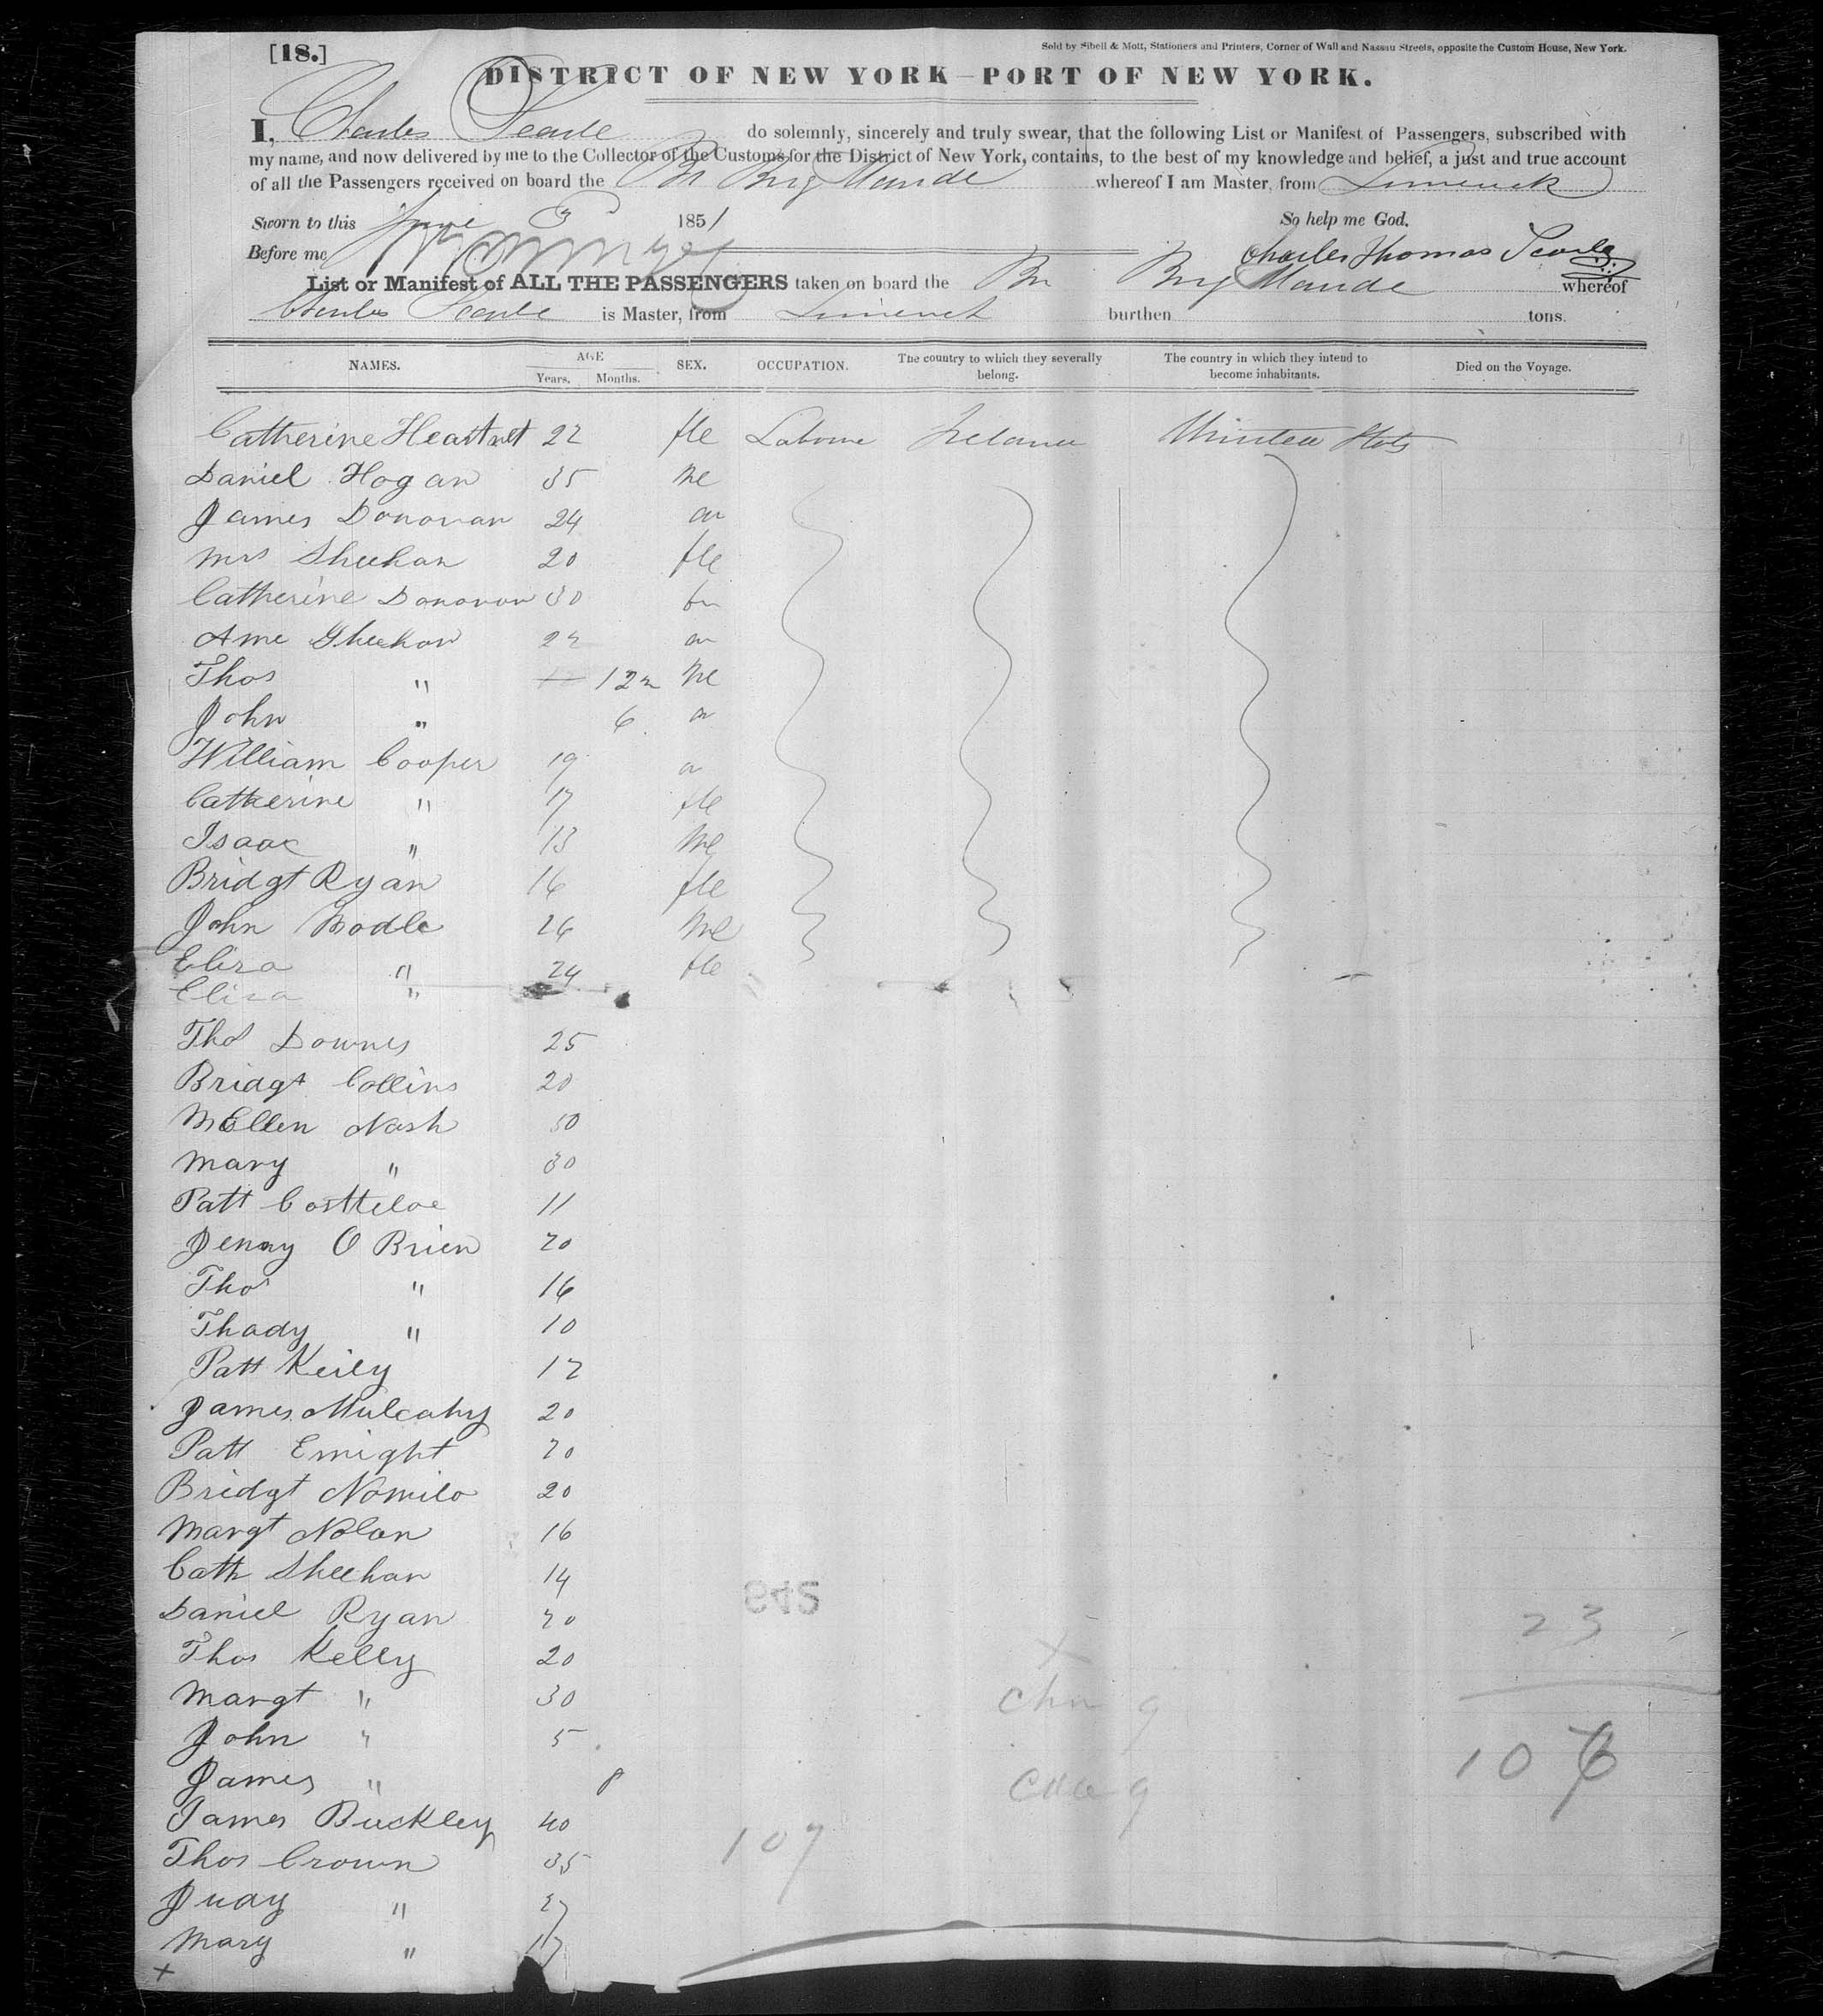 [18.]
Sold by Sibell & Mott, Stationers and Printers, Corner of Wall and Nassau Streets, opposite the Custom House, New York.
DISTRICT OF NEW YORK—PORT OF NEW YORK.
I, Charles Searle do solemnly, sincerely and truly swear, that the following List or Manifest of Passengers, subscribed with
my name, and now delivered by me to the Collector of the Customs for the District of New York, contains, to the best of my knowledge and belief, a just and true account
of all the Passengers received on board the Br Brig Maude whereof I am Master, from Limerick
Sworn to this June 3 1851 So help me God.
Before me Charles Thomas Searle
List or Manifest of ALL THE PASSENGERS taken on board the Br Brig Maude whereof
Charles Searle is Master, from Limerick burthen tons.
NAMES. AGE SEX. OCCUPATION. The country to which they severally belong. The country in which they intend to become inhabitants. Died on the Voyage.
Years. Months.
Catherine Heartnet 22 fle Labour Ireland United Stats
Daniel Hogan 35 Me
James Donovan 24
Mrs Sheehan 20 fle
Catherine Donovan 30
Ame Sheehan 22
Thos " 12 Me
John " 6
William Cooper 19
Catherine " 17 fle
Isaac " 13 Me
Bridgt Ryan 16 fle
John Modle 26 Me
Eliza " 24 fle
Eliza "
Thos Downes 25
Bridgt Collins 20
Ellen Nash 50
Mary " 30
Patt Costteloe 11
Denny O Brien 20
Thos " 16
Thady " 10
Patt Keily 12
James Mulcahy 20
Patt Enright 20
Bridgt Nomilo 20
Margt Nolan 16
Cath Sheehan 14
Daniel Ryan 20
Thos Kelly 20
Margt " 30
John " 5
James " 8
James Buckley 40
Thos Crown 35
Judy "
Mary "
845
23
X
chn 9
106
107
x